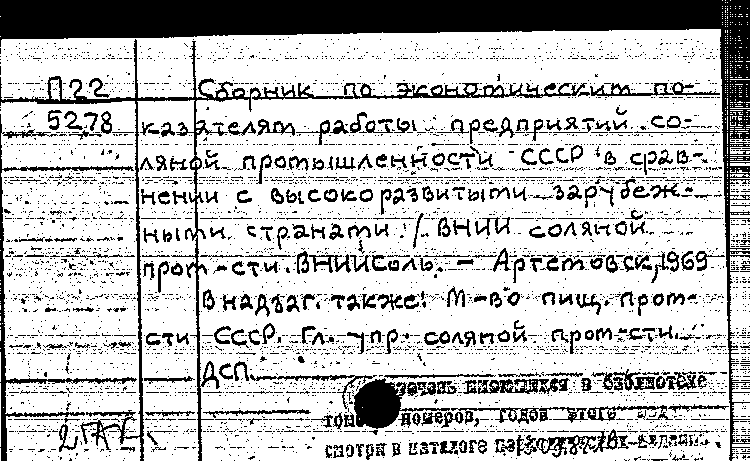 П22
5278
Сборник по экономическим по-
казателям работы предприятий со-
ляной промышленности СССР в срав-
нении с высокоразвитыми зарубеж-
ными странами. / ВНИИ соляной
пром-сти. ВНИИСоль. - Артемовск, 1969
В надзаг. также: М-во пищ. пром-
сти СССР. Гл. упр. соляной пром-сти.
ДСП.
имеющихся в библиотеке
номеров, годов этого
смотри в каталоге